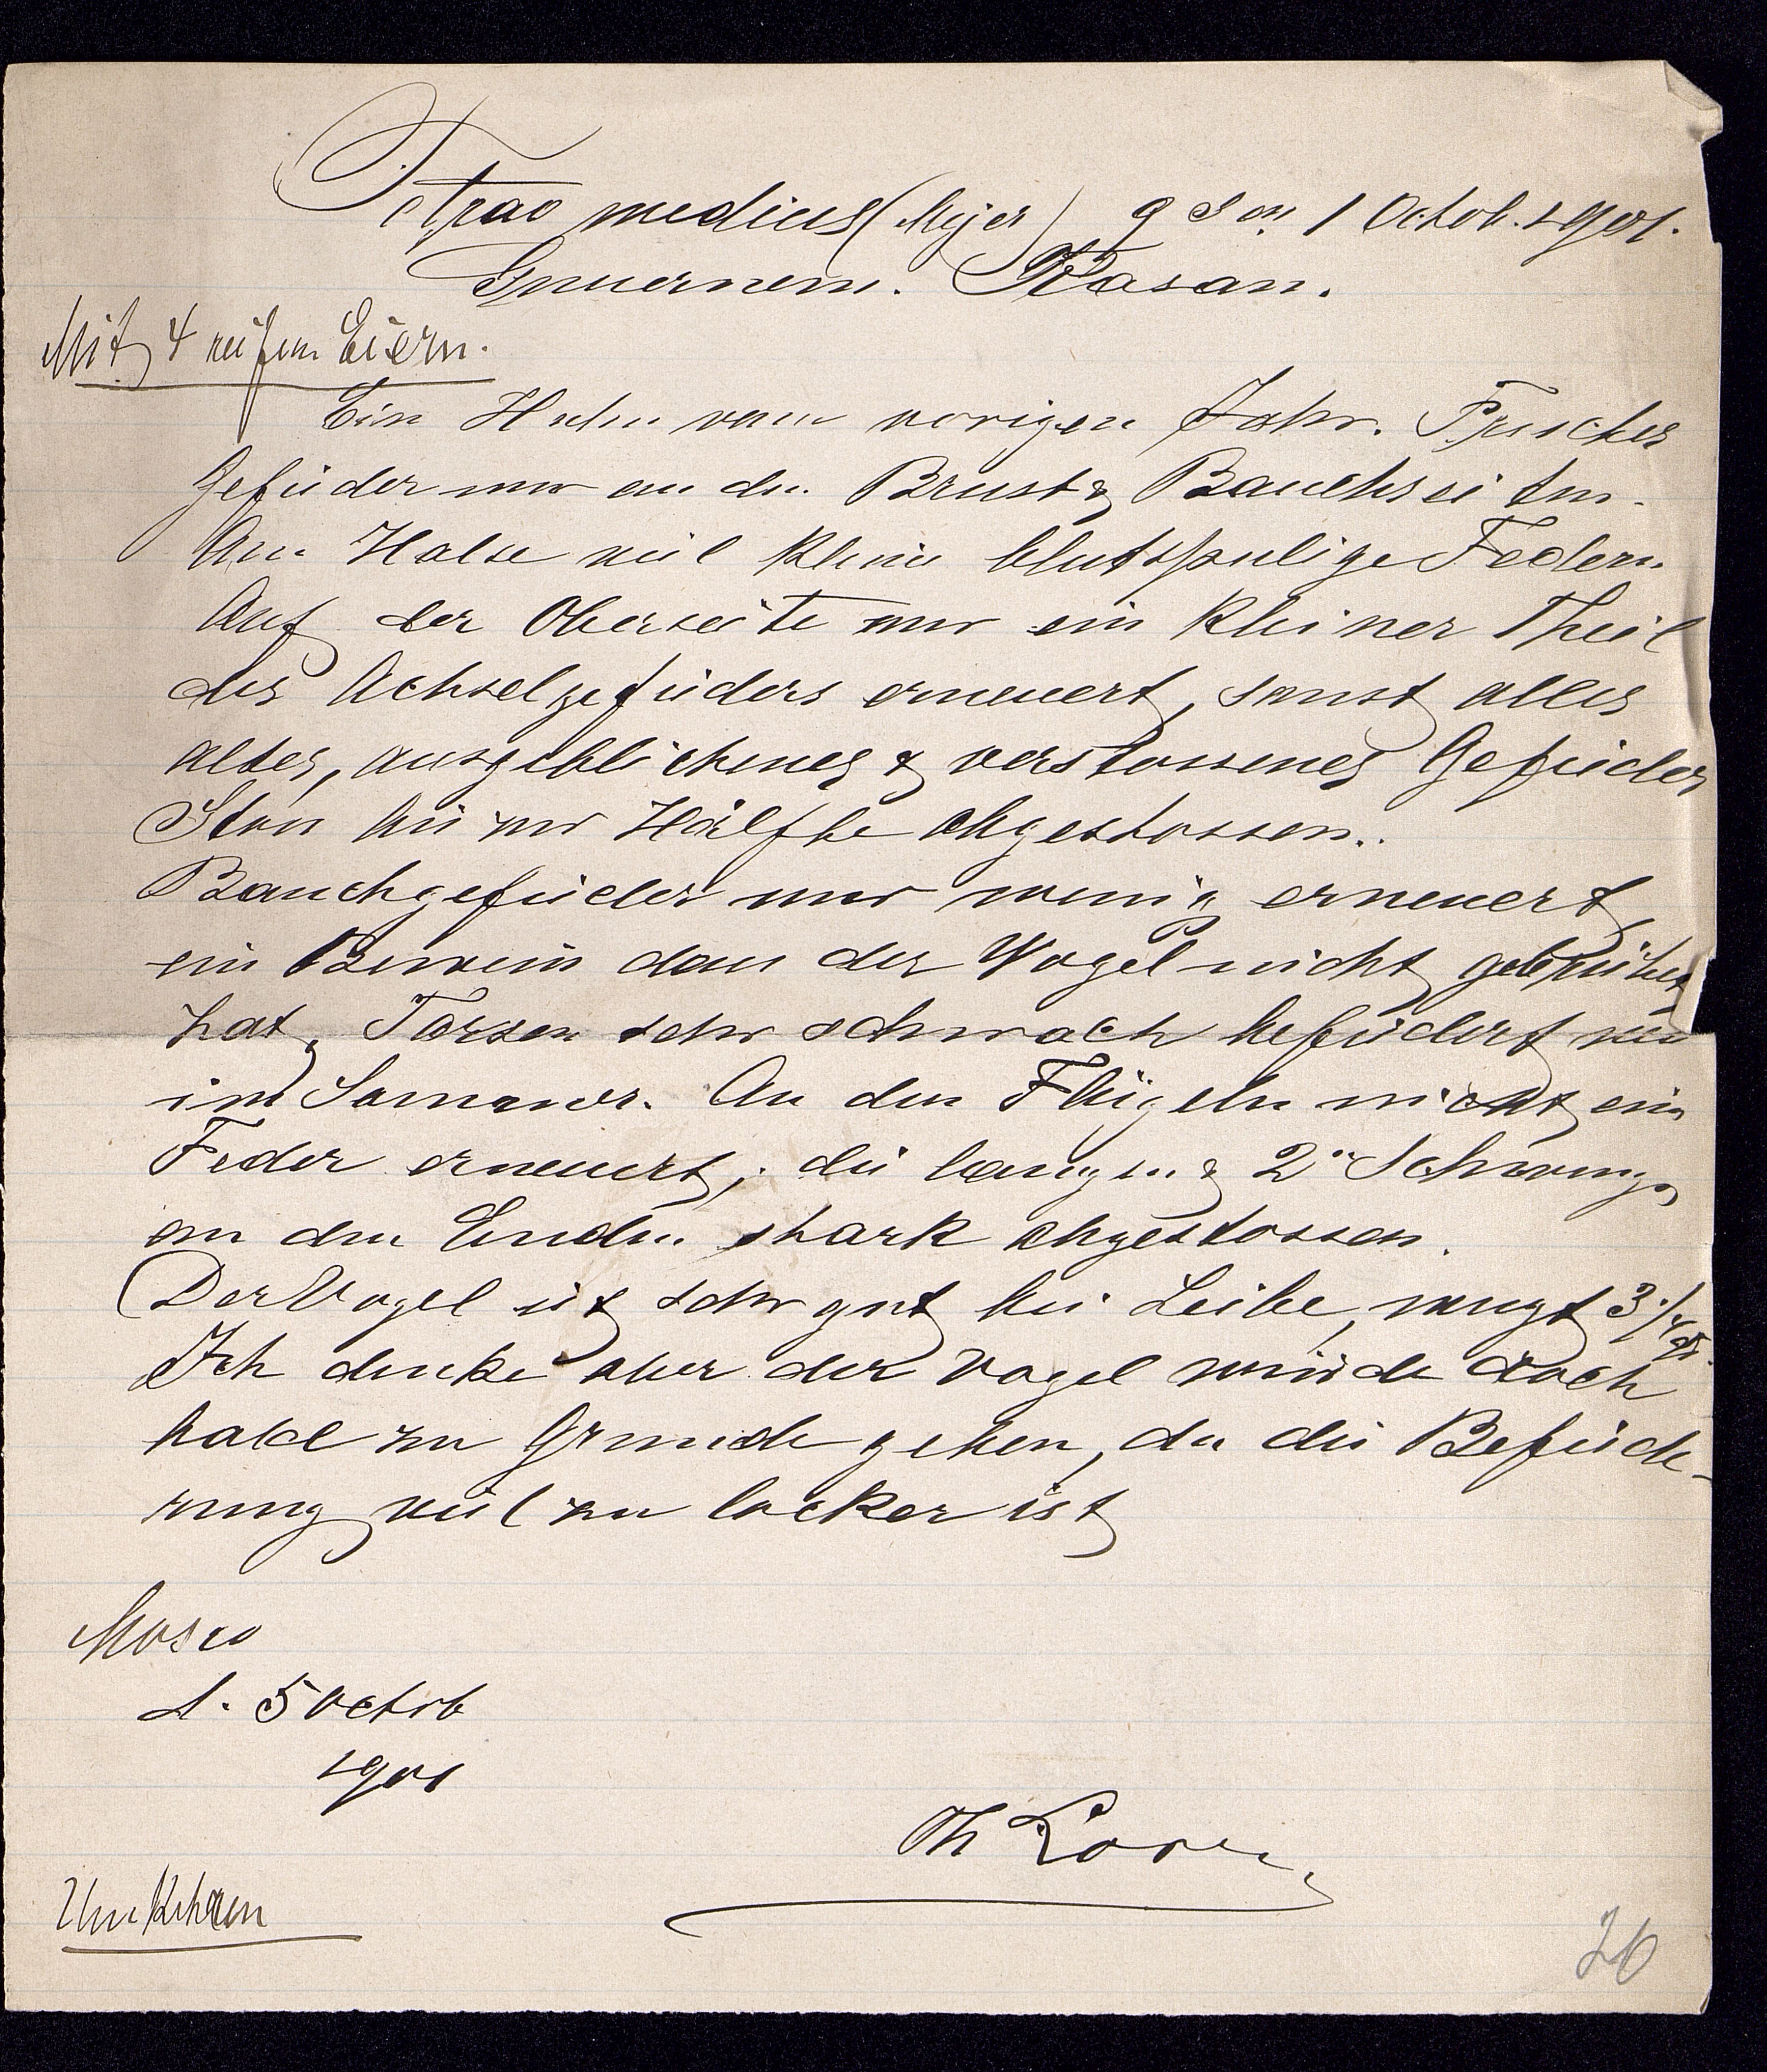 Tetrao medius (Mejer) 1 Octob. 1901.
Guvernem. Kasan.
Mit 4 reifen Eiern.
Ein Huhn vom vorigen Jahr. Frisches
Gefieder nur an den Brust & Bauchseiten.
Am Halse viel kleine blutspulige Federn
Auf der Oberseite nur ein kleiner Theil
des Achselgefieders erneuert, sonst alles
altes, ausgeblichenes & verstossenes Gefieder
bis zur Hälfte abgestossen.
Bauchgefieder nur wenig erneuert,
ein Beweis dass der Vogel nicht gebrütet
hat. Tarsen sehr schwach befiedert wie
im Sommer. An den Flügeln nicht ein
Feder erneuert, die langen & 2n Schwingn
an den Enden stark abgestossen.
Der Vogel ist sehr gut bei Leibe, wiegt 3 1/4
Ich denke aber der Vogel würde doch
bald zu Grunde gehen, da die Befiede-
rung viel zu locker ist
Mosco
d. 5 Octob
1901
Th Lorenz
Umkehren
26